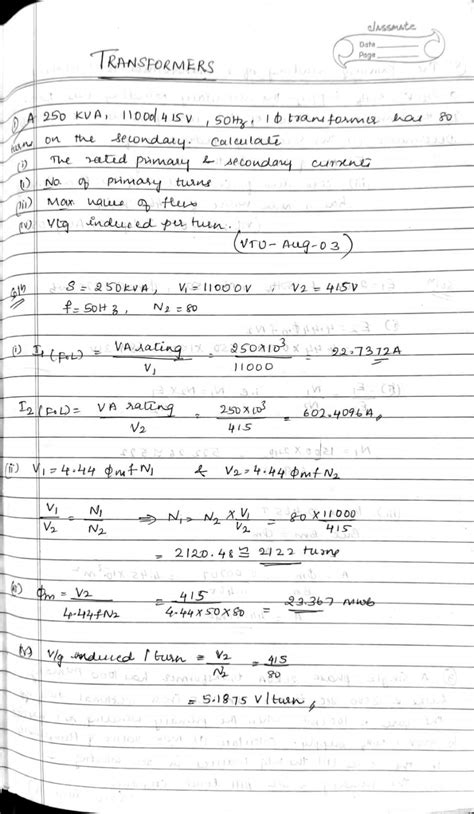 classmate
Date
Page
TRANSFORMERS
1) A 250 KVA, 11000/415V, 50Hz, 1ϕ transformer has 80
turns on the secondary. Calculate
(i) The rated primary & secondary currents
(ii) No. of primary turns
(iii) Max value of flux
(iv) Vtg induced per turn.
(VTU-Aug-03)
Soln S = 250KVA, V1 = 11000V, V2 = 415V
f = 50Hz, N2 = 80
(i) I1(F.L) = VA rating / V1 = 250×10³ / 11000 = 22.7372A
I2(F.L) = VA rating / V2 = 250×10³ / 415 = 602.4096A
(ii) V1 = 4.44 ϕmfN1 & V2 = 4.44 ϕmfN2
V1/V2 = N1/N2 ⇒ N1 = N2 × V1/V2 = 80 × 11000/415
= 2120.48 ≅ 2122 turns
(iii) ϕm = V2 / 4.44fN2 = 415 / 4.44×50×80 = 23.367 mwb
(iv) V/g induced / turn = V2/N2 = 415/80
= 5.1875 V/turn